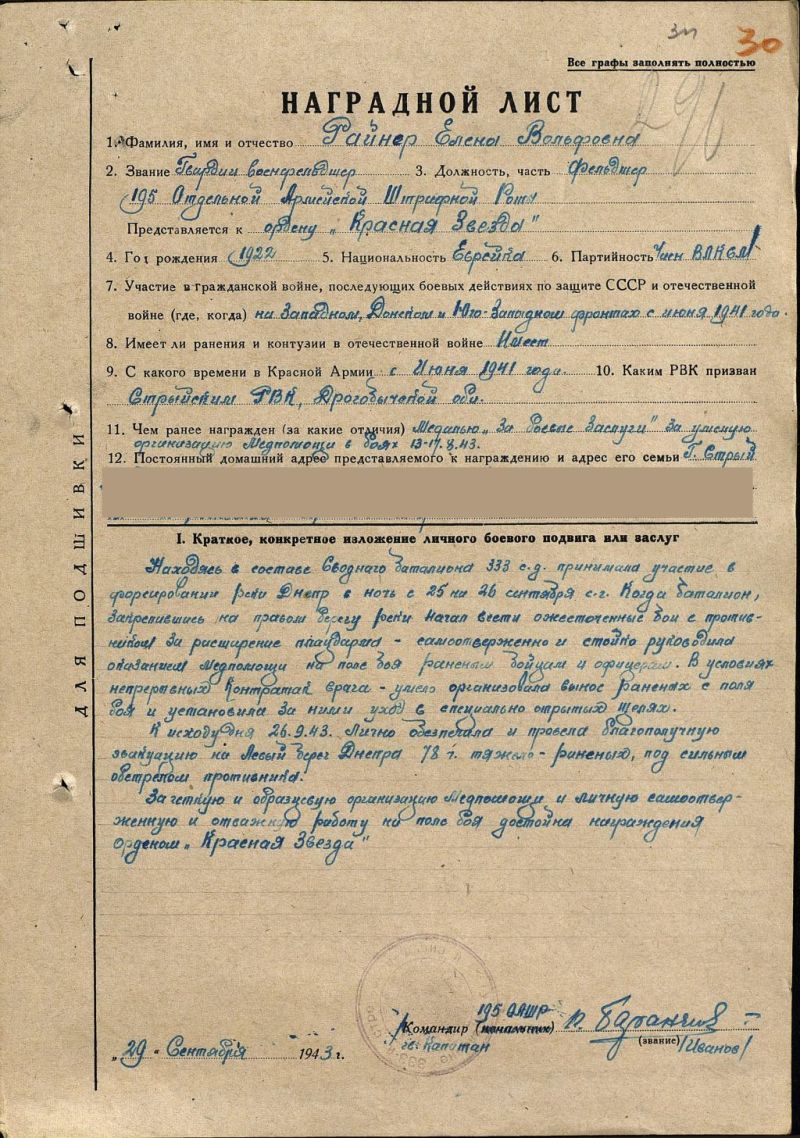 30
Все графы заполнять полностью
НАГРАДНОЙ ЛИСТ
1. Фамилия, имя и отчество Райнер Елена Вольфовна
2. Звание Гвардии Военфельдшер 3. Должность, часть Фельдшер
195 Отдельной Армейской Штрафной Роты
Представляется к ордену „Красная Звезда"
4. Год рождения 1922 5. Национальность Еврейка 6. Партийность Член ВЛКСМ
7. Участие в гражданской войне, последующих боевых действиях по защите СССР и отечественной
войне (где, когда) на Западном, Донском и Юго-Западном фронтах с июня 1941 года.
8. Имеет ли ранения и контузии в отечественной войне Имеет
9. С какого времени в Красной Армии с Июня 1941 года. 10. Каким РВК призван
Стрыйским РВК, Дрогобычской обл.
11. Чем ранее награжден (за какие отличия) Медалью „За боевые Заслуги" За умелую
организацию Медпомощи в боях 13-17.8.43.
12. Постоянный домашний адрес представляемого к награждению и адрес его семьи Г. Стрый
I. Краткое, конкретное изложение личного боевого подвига или заслуг
Находясь в составе Сводного баталиона 333 с.д. принимала участие в
форсировании реки Днепр в ночь с 25 на 26 сентября с.г. Когда баталион,
закрепившись на правом берегу реки начал вести ожесточенные бои с против-
ником за расширение плацдарма - самоотверженно и стойко руководила
оказанием Медпомощи на поле боя раненым бойцам и офицерам. В условиях
непрерывных контратак врага - умело организовала вынос раненых с поля
боя и установила за ними уход в специально отрытых щелях.
К исходу дня 26.9.43. Лично обезпечала и провела благополучную
эвакуацию на Левый берег Днепра 78 ч. тяжело-раненых, под сильным
обстрелом противника.
За четкую и образцовую организацию Медпомощи и личную самоотвер-
женную и отважную работу на поле боя достойна награждения
Орденом „Красная Звезда"
195 ОАШР
Командир (начальник)
гв. Капитан
(звание) /Иванов/
„29" Сентября 1943 г.
ДЛЯ ПОДШИВКИ